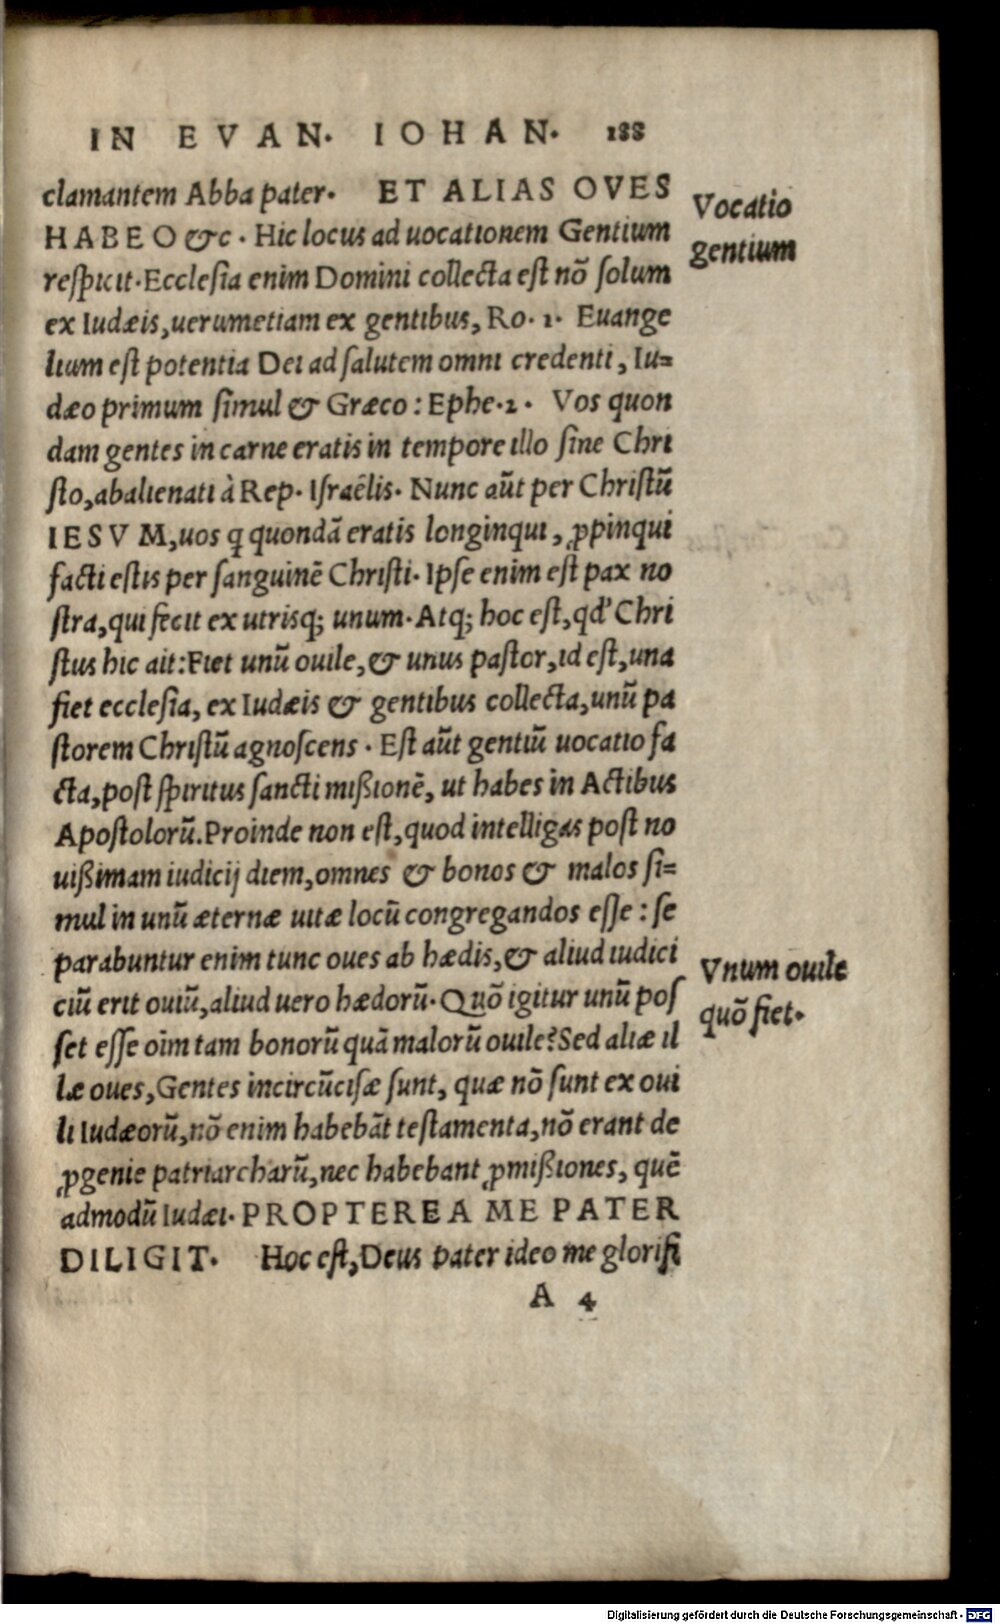 IN EVAN. IOHAN. 188
clamantem Abba pater. ET ALIAS OVES
HABEO &c. Hic locus ad uocationem Gentium
respicit. Ecclesia enim Domini collecta est nõ solum
ex Iudæis, uerumetiam ex gentibus, Ro. 1. Euange
lium est potentia Dei ad salutem omni credenti, Iu=
dæo primum simul & Græco: Ephe. 2. Vos quon
dam gentes in carne eratis in tempore illo sine Chri
sto, abalienati à Rep. Israëlis. Nunc aũt per Christũ
IESVM, uos q quondã eratis longinqui, ꝓpinqui
facti estis per sanguinẽ Christi. Ipse enim est pax no
stra, qui fecit ex utrisq; unum. Atq; hoc est, qd' Chri
stus hic ait: Fiet unũ ouile, & unus pastor, id est, una
fiet ecclesia, ex Iudæis & gentibus collecta, unũ pa
storem Christũ agnoscens. Est aũt gentiũ uocatio fa
cta, post spiritus sancti mißionẽ, ut habes in Actibus
Apostolorũ. Proinde non est, quod intelligas post no
uißimam iudicij diem, omnes & bonos & malos si=
mul in unũ æternæ uitæ locũ congregandos esse: se
parabuntur enim tunc oues ab hædis, & aliud iudici
ciũ erit ouiũ, aliud uero hædorũ. Quõ igitur unũ pos
set esse oĩm tam bonorũ quã malorũ ouile? Sed aliæ il
læ oues, Gentes incircũcisæ sunt, quæ nõ sunt ex oui
li Iudæorũ, nõ enim habebãt testamenta, nõ erant de
ꝓgenie patriarcharũ, nec habebant ꝓmißiones, quẽ
admodũ Iudæi. PROPTEREA ME PATER
DILIGIT. Hoc est, Deus pater ideo me glorifi
A 4
Vocatio
gentium
Vnum ouile
quõ fiet.
Digitalisierung gefördert durch die Deutsche Forschungsgemeinschaft - DFG